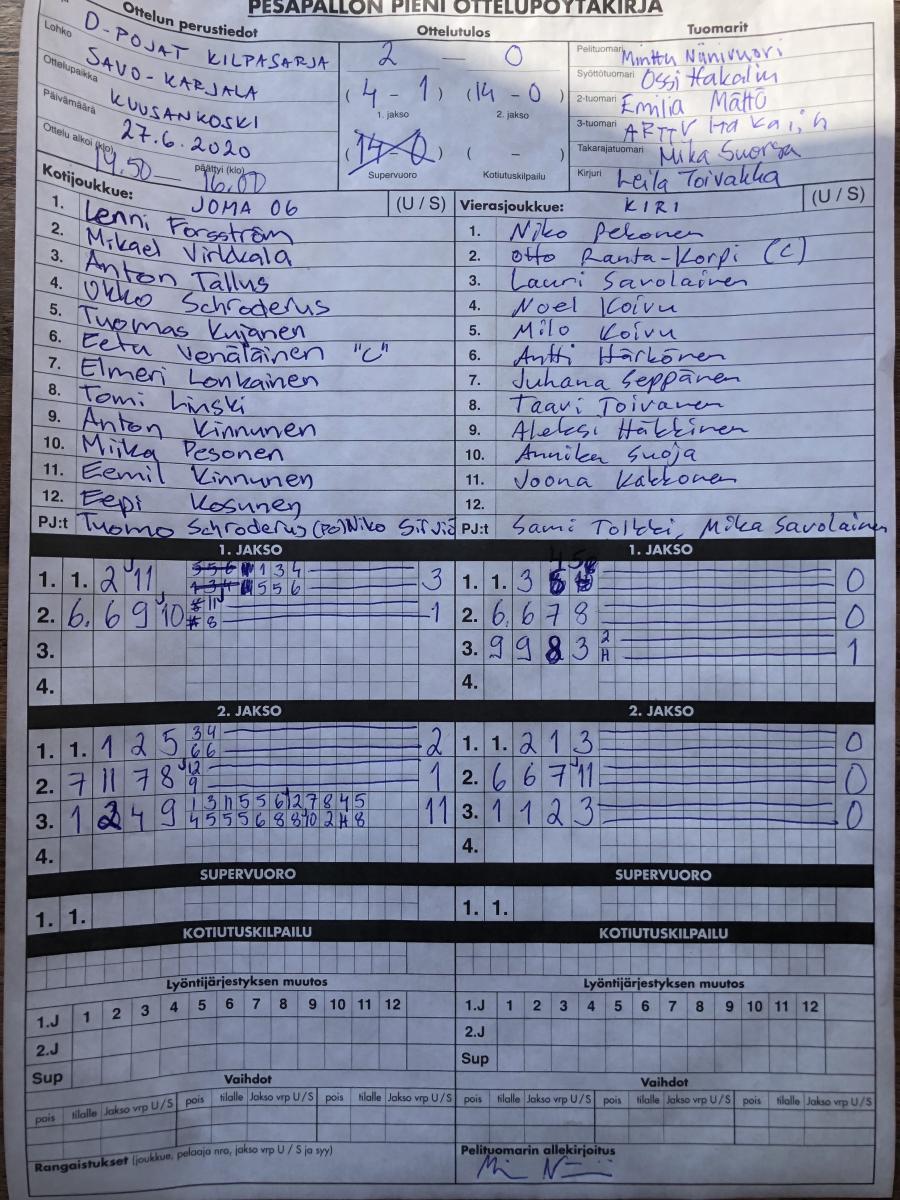 PESÄPALLON PIENI OTTELUPÖYTÄKIRJA
Ottelun perustiedot
Lohko D-POJAT KILPASARJA
SAVO-KARJALA
Ottelupaikka KUUSANKOSKI
Päivämäärä 27.6.2020
Ottelu alkoi (klo) 14.50 — päättyi (klo) 16.00
Ottelutulos
2 — 0
(4 - 1) (14 - 0)
1. jakso 2. jakso
(14-0) ( - )
Supervuoro Kotiutuskilpailu
Tuomarit
Pelituomari Minttu Niinivuori
Syöttötuomari Ossi Hakalin
2-tuomari Emilia Mättö
3-tuomari ARTTU
Takarajatuomari Mika Suorsa
Kirjuri Leila Toivakka
Kotijoukkue: JOMA 06 (U / S)
1. Lenni Forsström
2. Mikael Virkkala
3. Anton Tallus
4. Okko Schroderus
5. Tuomas Kujanen
6. Eetu Venäläinen "C"
7. Elmeri Lonkainen
8. Tomi Linski
9. Anton Kinnunen
10. Miika Pesonen
11. Eemil Kinnunen
12. Eepi Kosunen
PJ:t Tuomo Schroderus (PO) Niko
Vierasjoukkue: KIRI (U / S)
1. Niko Pekonen
2. Otto Ranta-Korpi (C)
3. Lauri Savolainen
4. Noel Koivu
5. Milo Koivu
6. Antti Härkönen
7. Juhana Seppänen
8. Taavi Toivanen
9. Aleksi Häkkinen
10. Annika Suoja
11. Joona Kakkonen
12.
PJ:t Sami Tolkki, Mika Savolainen
1. JAKSO
1. 1. 2 11 5 5 6 1 3 4 3
1 3 4 5 5 6
2. 6. 6 9 10 11 1
8
3.
4.
1. JAKSO
1. 1. 3 4 5 0
2. 6. 6 7 8 0
3. 9 9 8 3 2 1
H
4.
2. JAKSO
1. 1. 1 2 5 3 4 2
6 6
2. 7 11 7 8 12 1
9
3. 1 2 4 9 1 3 11 5 5 6 12 7 8 4 5 11
4 5 5 5 6 8 8 10 2 H 8
4.
2. JAKSO
1. 1. 2 1 3 0
2. 6 6 7 11 0
3. 1 1 2 3 0
4.
SUPERVUORO
1. 1.
SUPERVUORO
1. 1.
KOTIUTUSKILPAILU
KOTIUTUSKILPAILU
Lyöntijärjestyksen muutos
1.J 1 2 3 4 5 6 7 8 9 10 11 12
2.J
Sup
Lyöntijärjestyksen muutos
1.J 1 2 3 4 5 6 7 8 9 10 11 12
2.J
Sup
Vaihdot
pois tilalle Jakso vrp U / S pois tilalle Jakso vrp U / S pois tilalle Jakso vrp U / S
Vaihdot
pois tilalle Jakso vrp U / S pois tilalle Jakso vrp U / S pois tilalle Jakso vrp U / S
Rangaistukset (joukkue, pelaaja nro, jakso vrp U / S ja syy)
Pelituomarin allekirjoitus